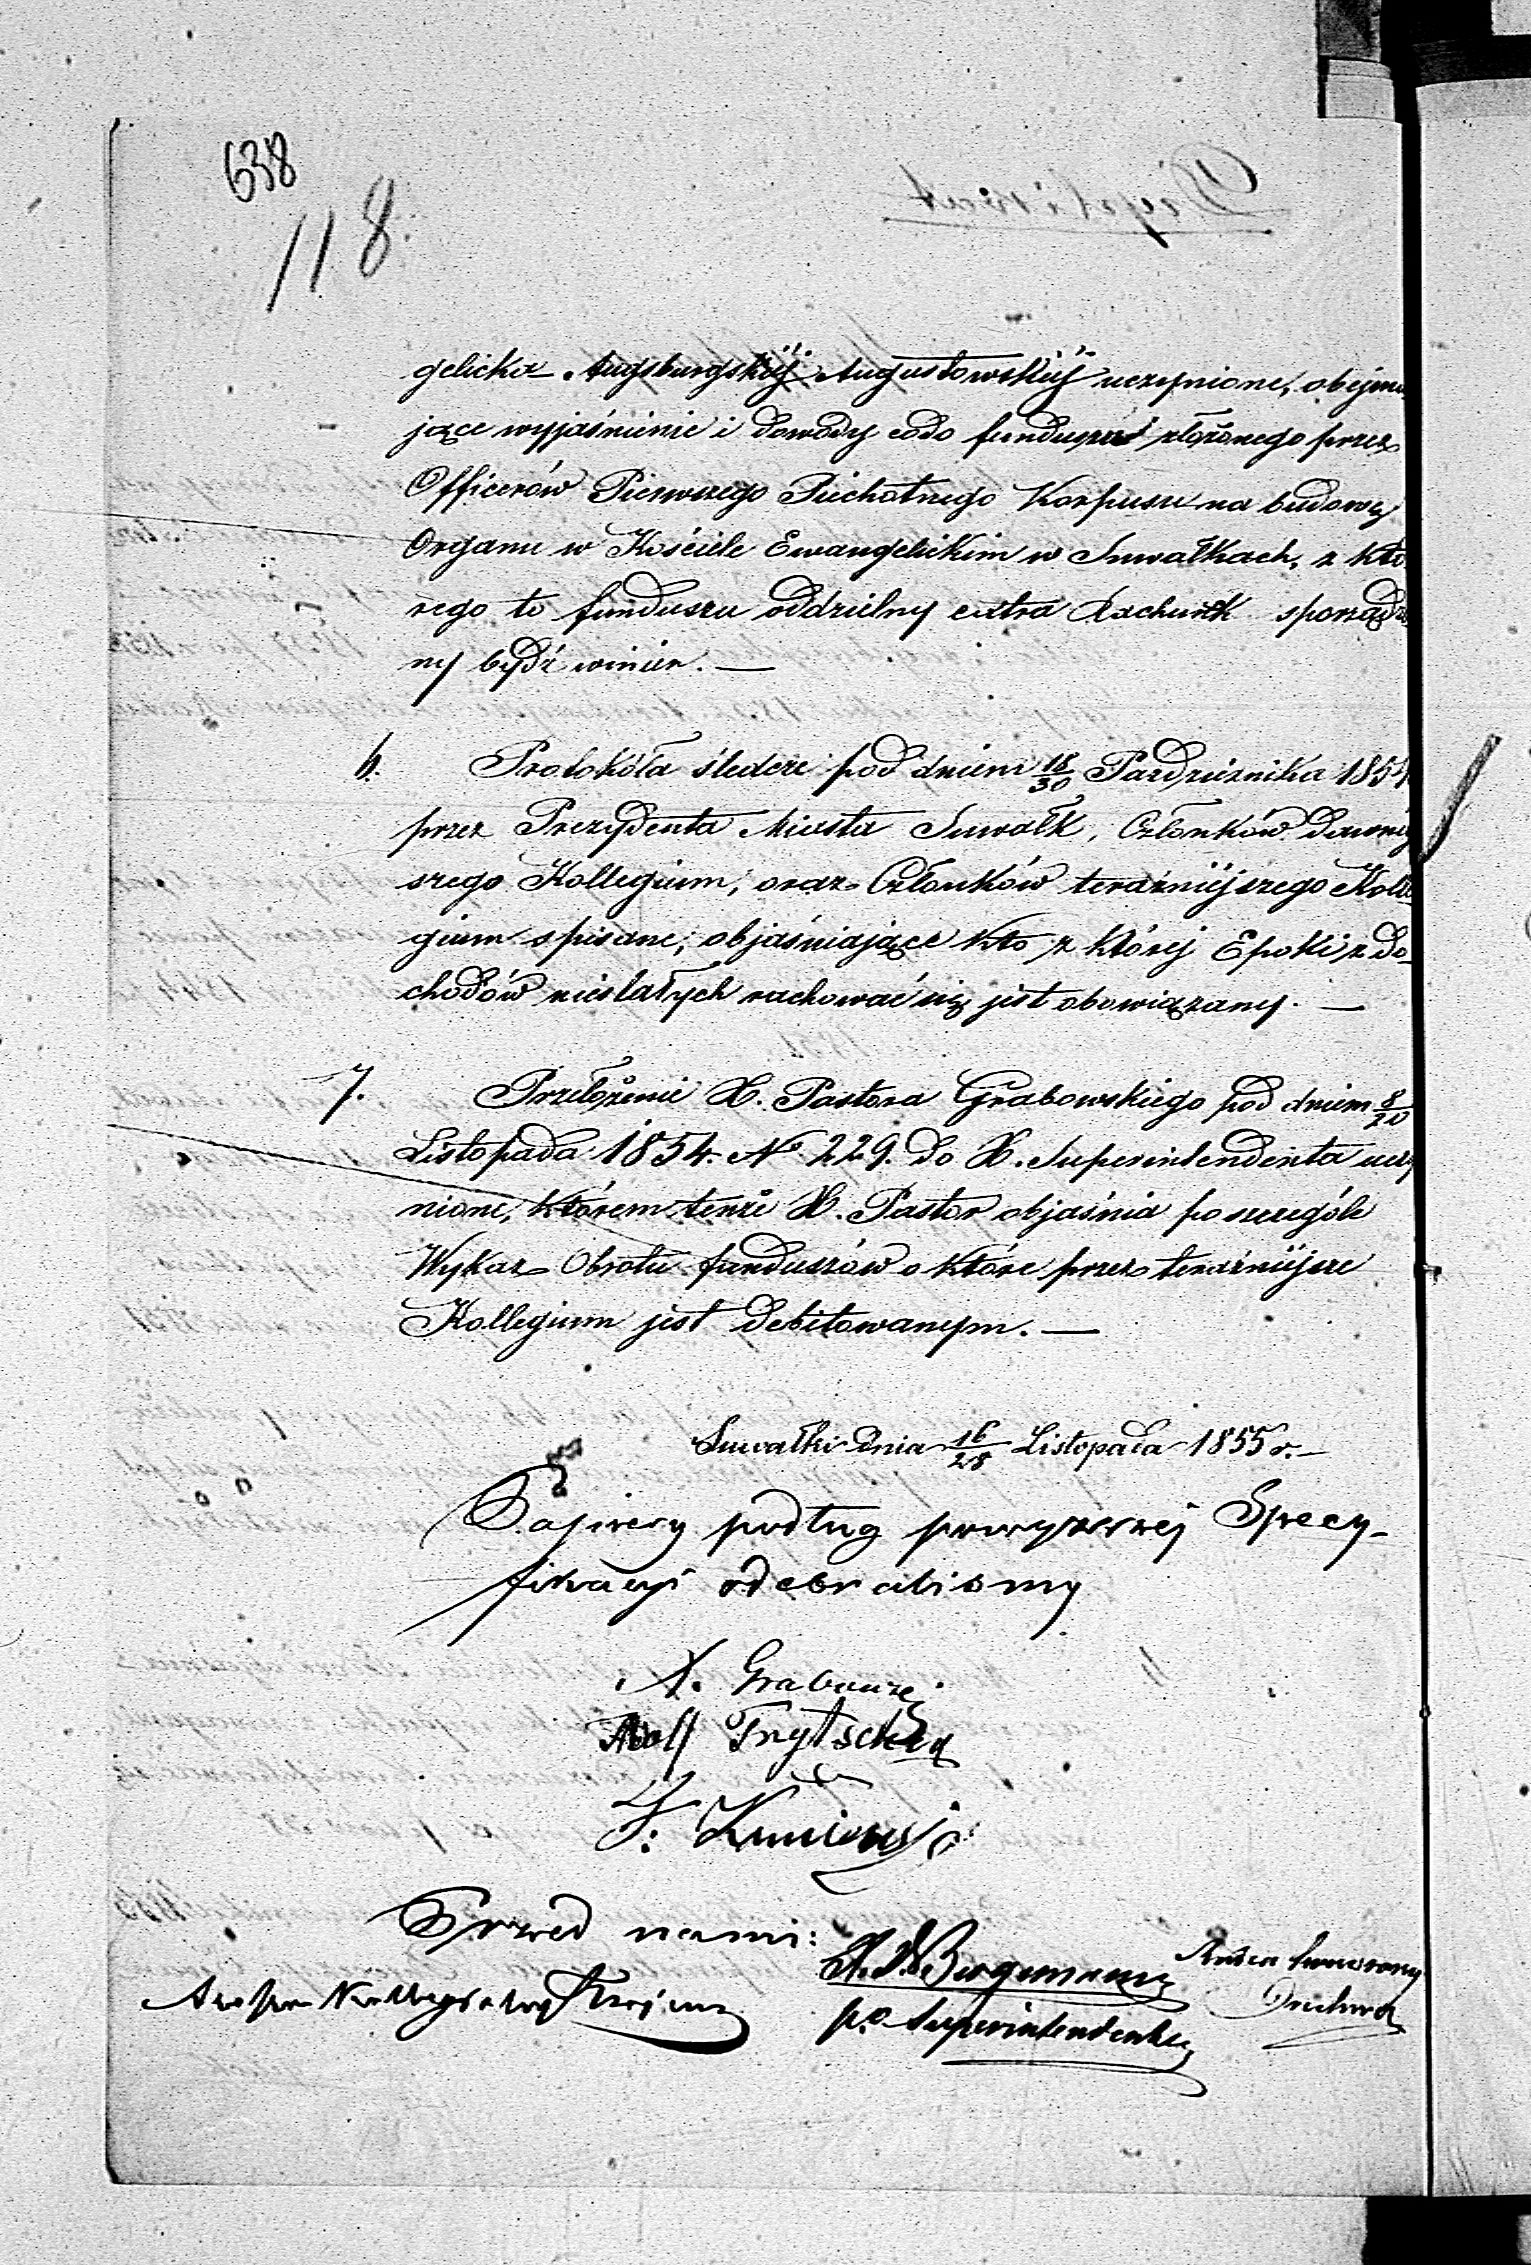 638
118.
gelicko Augsburgskiej Augustowskiej uczynione, obejmu
jące wyjaśnienie i dowody codo funduszu złożonego przez
Officerów Pierwszego Piechotnego Korpusu na budowę
Organu w Kościele Ewangelickim w Suwałkach, z któ
rego to funduszu oddzielny extra Rachunek sporządzo
ny bydź winien. —
6. Protokóła śledcze pod dniem 18/30 Pazdziernika 1854
przez Prezydenta Miasta Suwałk, Członków dawniej
szego Kollegium, oraz Członków teraźniejszego Kolle
gium spisane, objaśniające kto z której Epoki z do-
chodów niestałych rachować się jest obowiązany. —
7. Przełożenie X. Pastora Grabowskiego pod dniem 8/20
Listopada 1854. N 229. do X. Superintendenta uczy
nione, którem tenże X. Pastor objaśnia poszczególe
Wykaz Obrotu funduszów o które przez teraźniejsze
Kollegium jest debitowanym. —
Suwałki dnia 16/28 Listopada 1855 r. —
Papiery podług powyższej Specy-
fikacyi odebraliśmy
X. Grabowski
Adolf
Przed nami:
p.o. Superintendenta